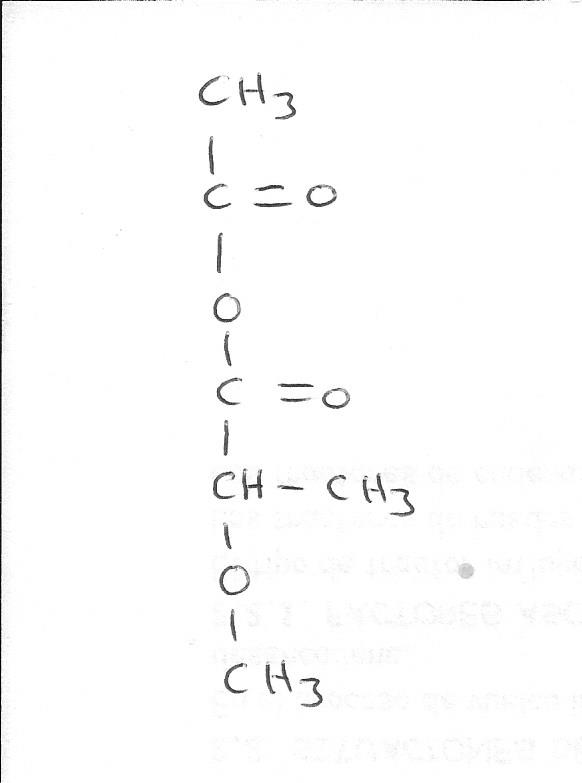 CH3
|
C = O
|
O
|
C = O
|
CH - CH3
|
O
|
CH3